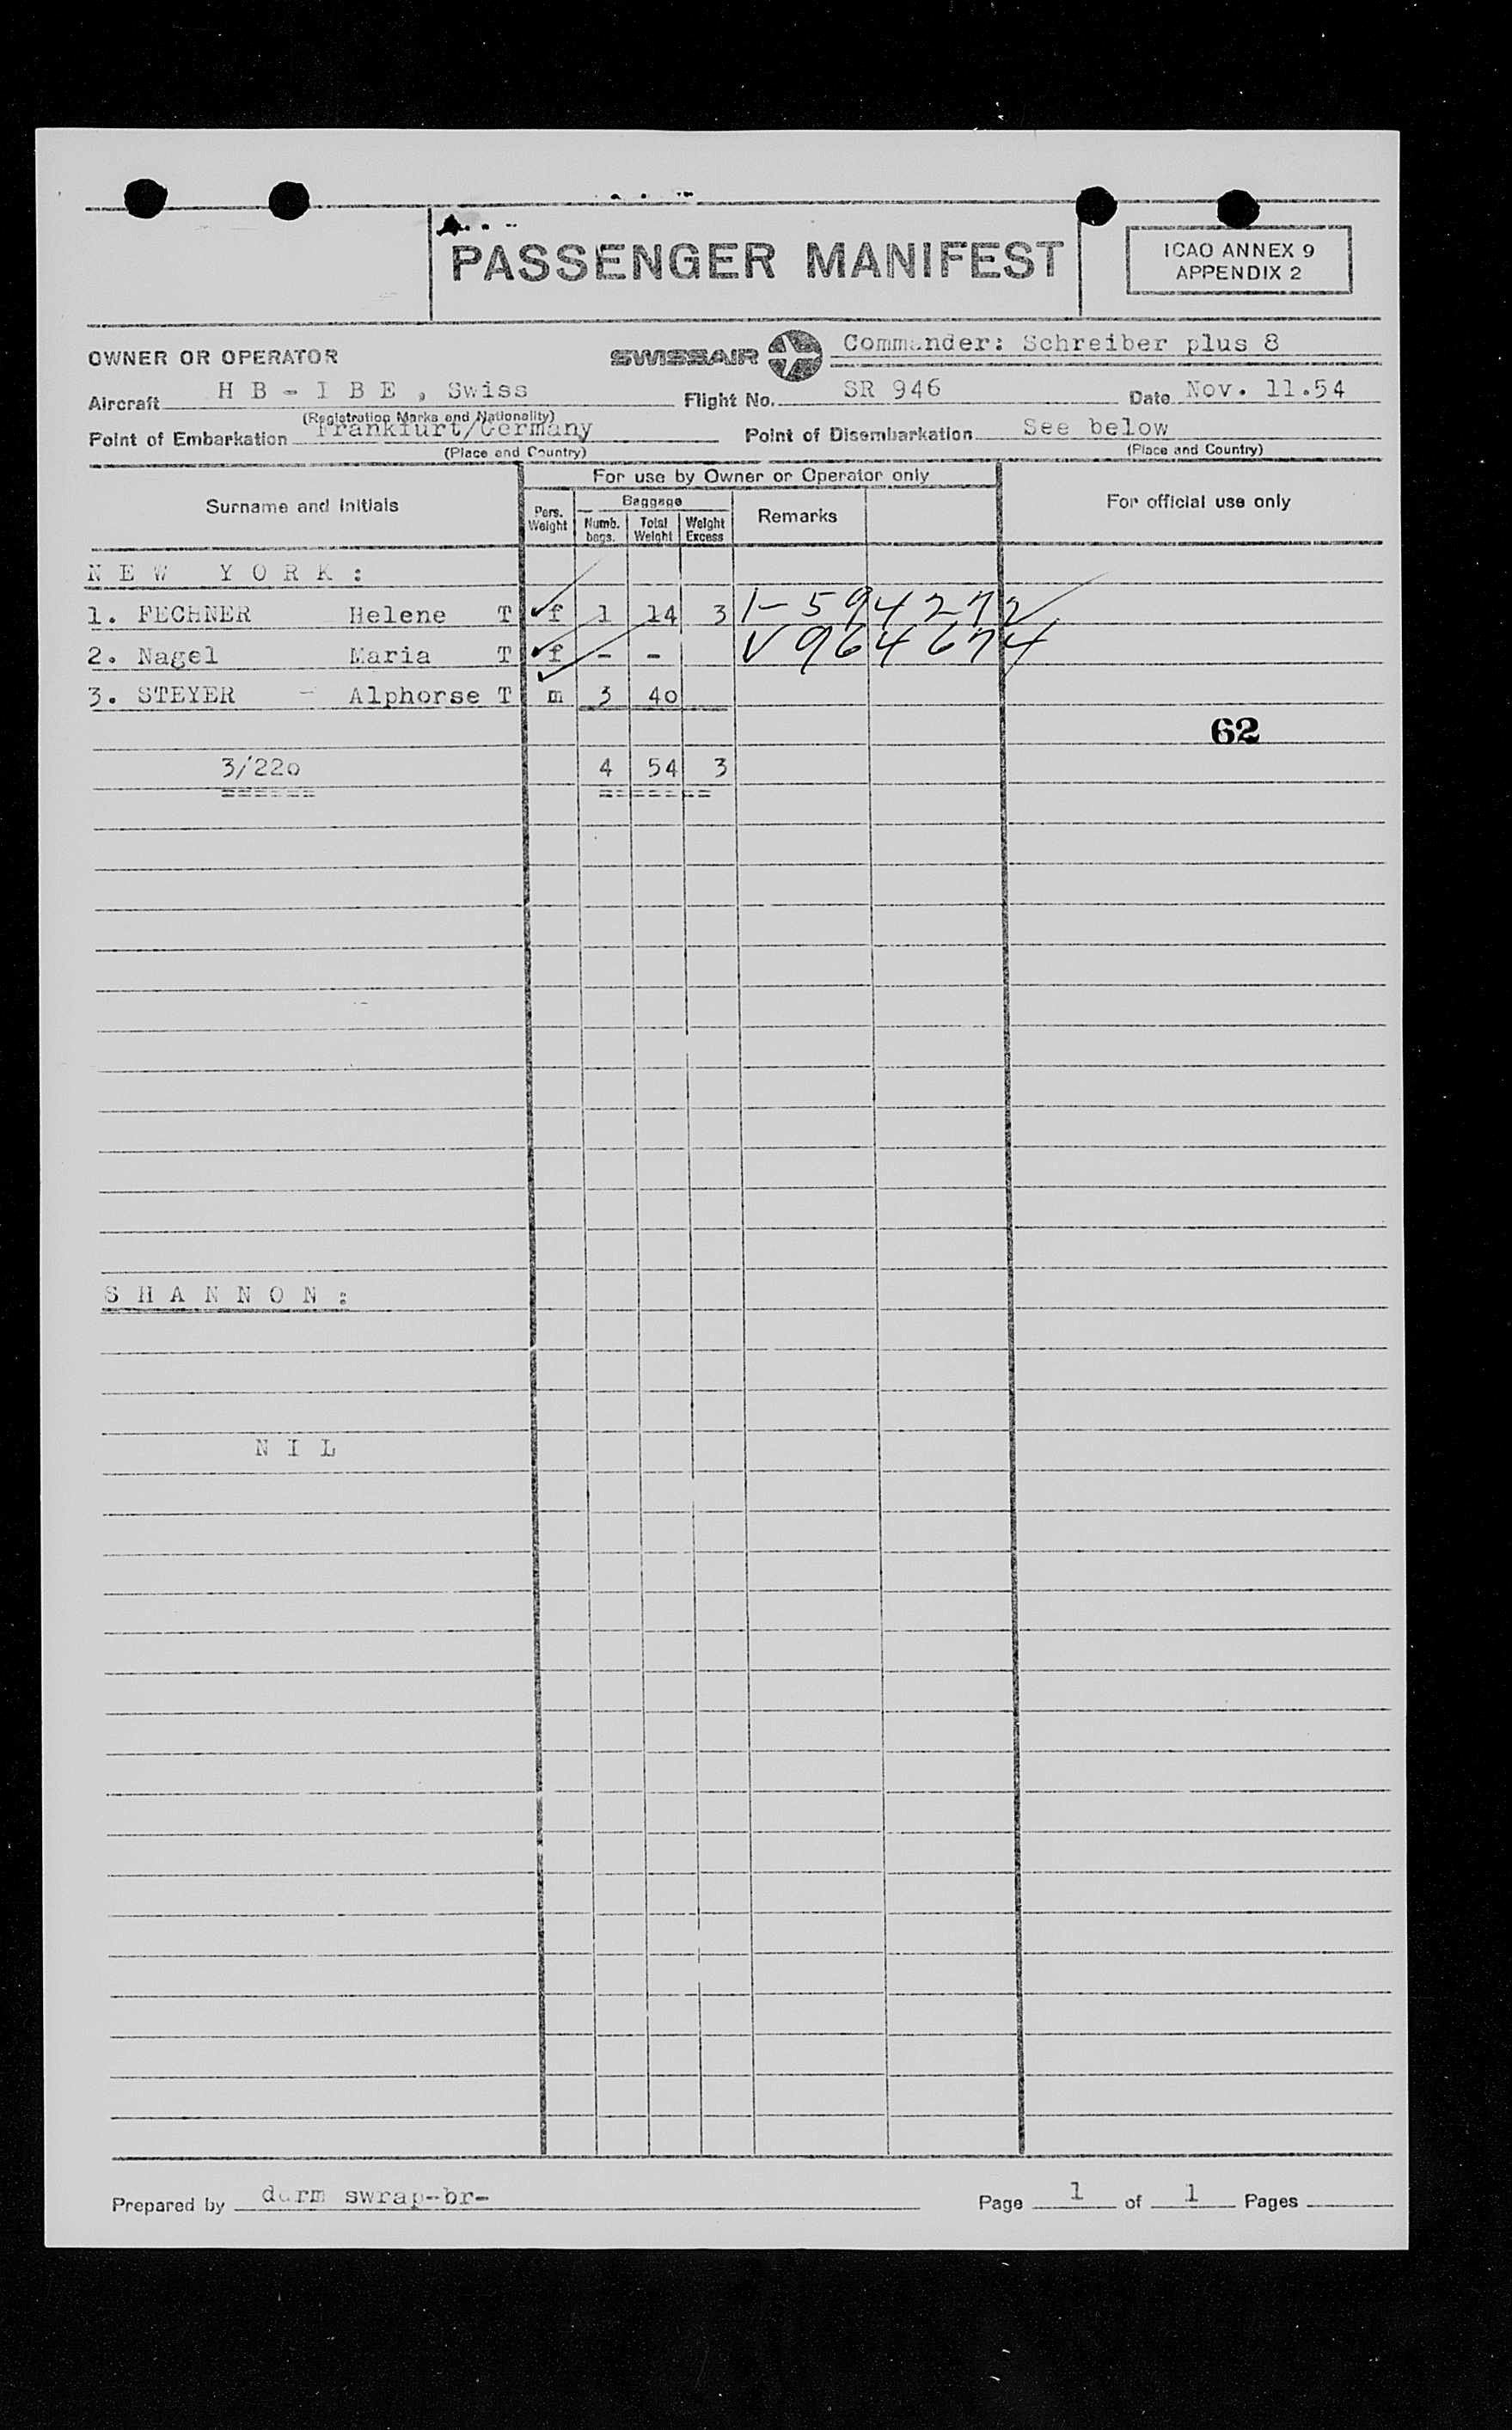 PASSENGER MANIFEST
ICAO ANNEX 9
APPENDIX 2
OWNER OR OPERATOR SWISSAIR Commander: Schreiber plus 8
Aircraft H B - I B E , Swiss Flight No. SR 946 Date Nov. 11.54
(Registration Marks and Nationality)
Point of Embarkation Frankfurt/Germany Point of Disembarkation See below
(Place and Country) (Place and Country)
For use by Owner or Operator only
Surname and Initials Pers. Weight Baggage Remarks For official use only
Numb. bags. Total Weight Weight Excess
N E W Y O R K :
1. FECHNER Helene T f 1 14 3 1-594272
2. Nagel Maria T f - - V964674
3. STEYER - Alphorse T m 3 4o
62
3/22o 4 54 3
====== =======
S H A N N O N :
N I L
Prepared by swrap-br- Page 1 of 1 Pages